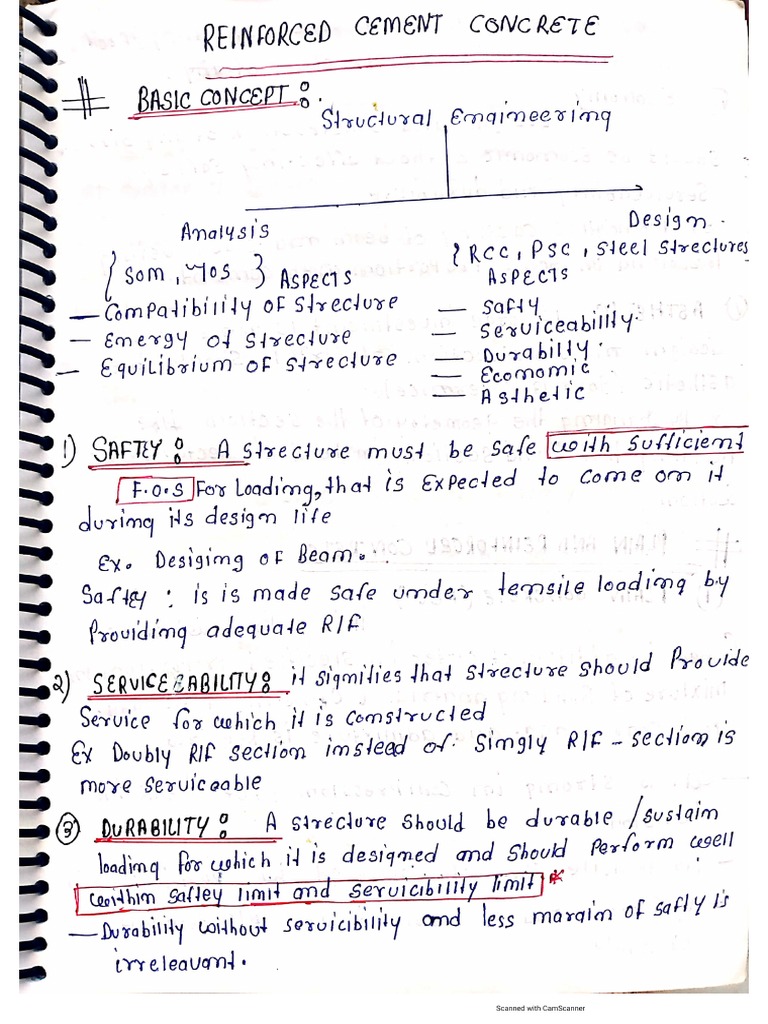 REINFORCED CEMENT CONCRETE
# BASIC CONCEPT:
Structural Engineering
Analysis
Design.
{SOM, TOS} ASPECTS
{RCC, PSC, Steel Strectures
ASPECTS
— Compatibility of Strecture
— Energy of Strecture
— Equilibrium of Strecture
— Safty
— Serviceability.
— Durabilty.
— Economic.
— Asthetic
1) SAFTEY: A Strecture must be safe with sufficient
F.O.S For Loading, that is Expected to come on it
during its design life
Ex. Desiging of Beam..
Saftey: is is made safe under tensile loading by
Providing adequate R/F
2) SERVICEABILITY: it signifies that Strecture Should Provide
Service for which it is constructed
Ex Doubly R/F section instead of Singly R/F - section is
more serviceable
3) DURABILITY: A Strecture Should be durable / sustain
loading for which it is designed and should Perform well
within saftey limit and servicibility limit *
— Durability without servicibility and less margin of safty is
irreleavant.
Scanned with CamScanner